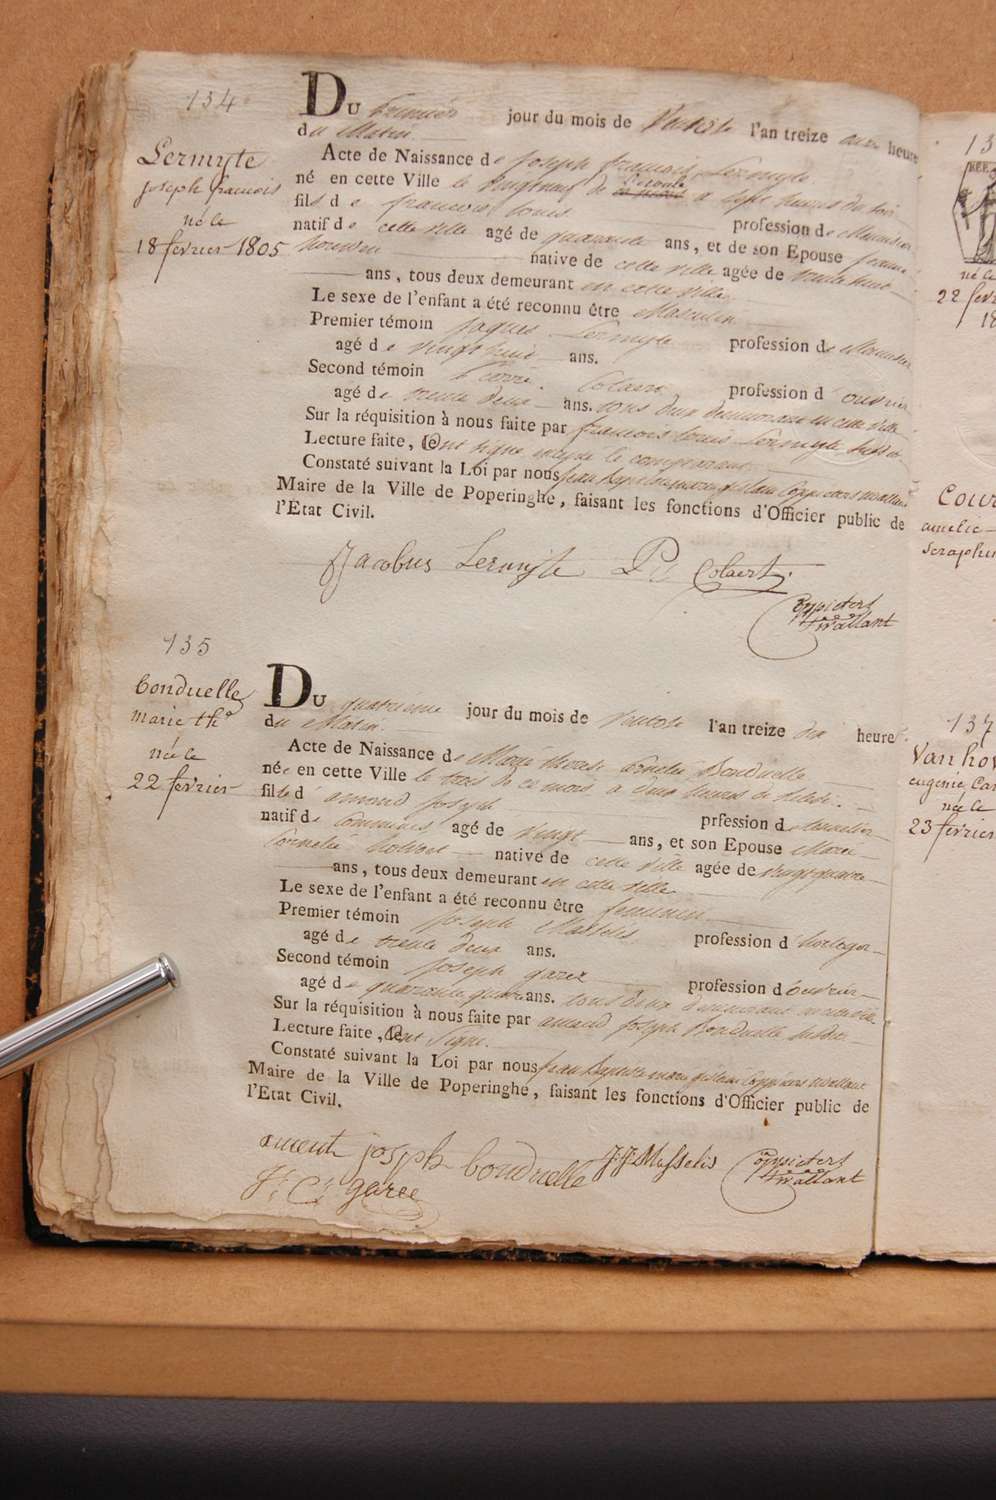 134
Lermyte
joseph francois
né le
18 fevrier 1805
DU premier jour du mois de Ventose l'an treize onze heure
du Matin
Acte de Naissance de Joseph francois Lermyte
né en cette Ville le vingt neuf de pluviose a sept heures du soir
fils de francois Louis profession de Meunier
natif de cette ville agé de quarante ans, et de son Epouse
native de cette ville agée de trente huit
ans, tous deux demeurant en cette ville
Le sexe de l'enfant a été reconnu être Masculin
Premier témoin Jaques Lermyte profession de Meunier
agé de vingt huit ans.
Second témoin Pierre Colaert profession d'ouvrier
agé de trente deux ans. tous deux demeurant en cette ville
Sur la réquisition à nous faite par francois Louis Lermyte susdit
Lecture faite, Ont signé excepté le comparant
Constaté suivant la Loi par nous Jean Baptiste
Maire de la Ville de Poperinghe, faisant les fonctions d'Officier public de
l'État Civil.
Jacobus Lermyte P Colaert
135
Bonduelle
marie th
née le
22 fevrier
DU quatrieme jour du mois de Ventose l'an treize dix heures
du Matin
Acte de Naissance de Marie therese Cornelie Bonduelle
née en cette Ville le trois de ce mois a deux heures de
fille d'amand Joseph prfession de
natif de Commines agé de Vingt ans, et son Epouse Marie
Cornelie native de cette ville agée de vingt quatre
ans, tous deux demeurant en cette ville
Le sexe de l'enfant a été reconnu être feminin
Premier témoin Joseph Masselis profession d'horloger
agé de trente deux ans.
Second témoin Joseph garee profession d'ouvrier
agé de quarante quatre ans. tous deux demeurant en cette ville
Sur la réquisition à nous faite par amand Joseph Bonduelle susdit
Lecture faite, Ont Signé.
Constaté suivant la Loi par nous Jean Baptiste
Maire de la Ville de Poperinghe, faisant les fonctions d'Officier public de
l'Etat Civil.
ament joseph bonduelle J. J. Masselis
garee
né le
22 fevr
18
Cour
amelie
Seraphin
137
Van hov
eugénie Car
née le
23 fevrier